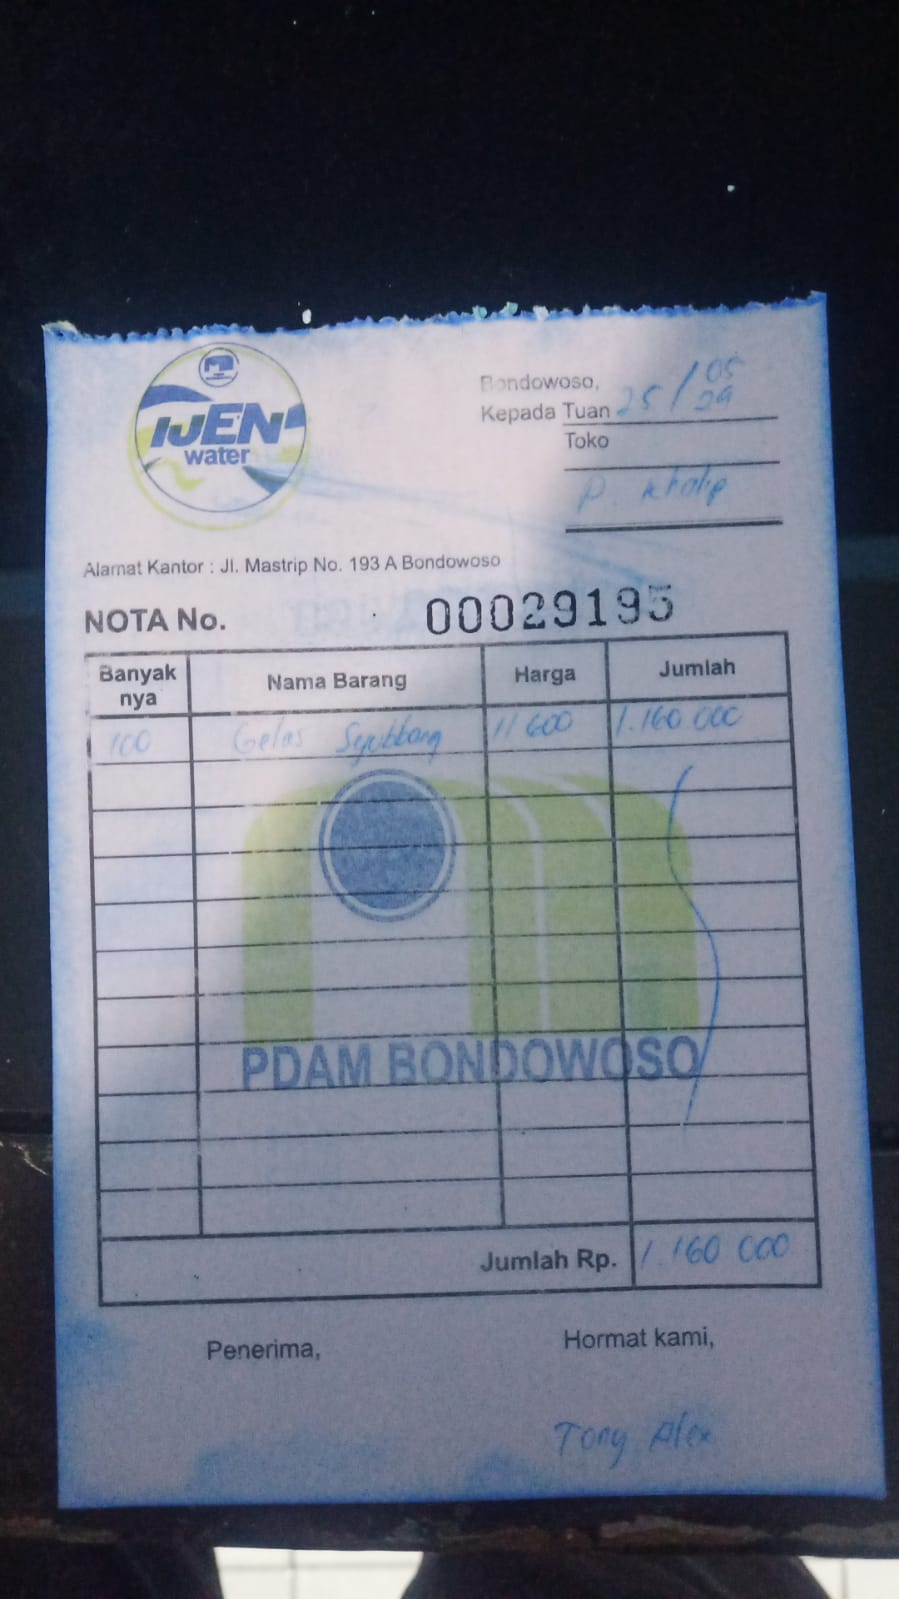 IJEN
water
Bondowoso, 25 / 05
Kepada Tuan
Toko
P. Kholip
Alamat Kantor : Jl. Mastrip No. 193 A Bondowoso
NOTA No. 00029195
Banyak nya Nama Barang Harga Jumlah
100 Gelas 11 600 1.160.000
PDAM BONDOWOSO
Jumlah Rp. 1.160 000
Penerima, Hormat kami,
Tony Alex